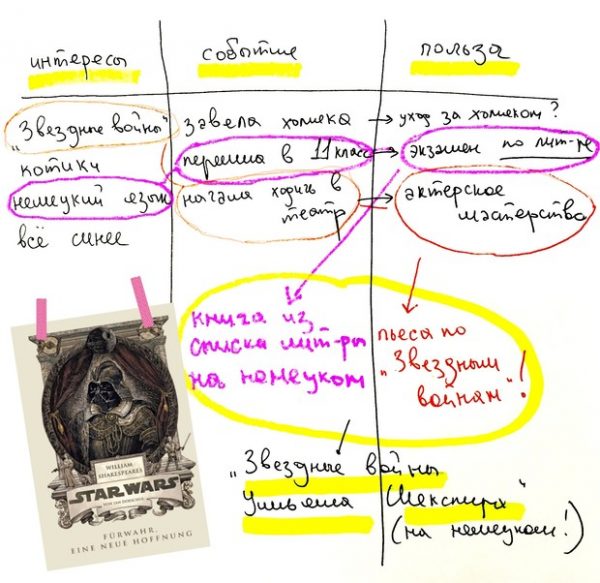 интересы событие польза
„Звездные войны" завела хомяка → уход за хомяком?
котики перешла в 11 класс → экзамен по лит-ре
немецкий язык начала ходить в театр → актерское мастерство
всё синее
книга из
списка лит-ры
на немецком
пьеса по
„Звездным
войнам"!
„Звездные войны
Уильяма Шекспира"
(на немецком!)
WILLIAM
SHAKESPEARES
STAR WARS
VON IAN DOESCHER
FÜRWAHR,
EINE NEUE HOFFNUNG